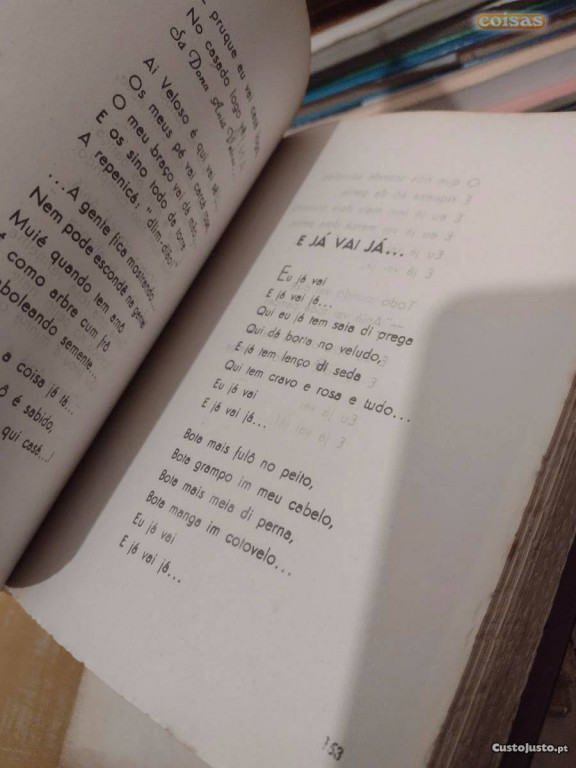 pruque eu vai casá logo
No casado logo
Sá Dona
Ai Veloso é qui vai sê...
Os meus pé vai cercá nos
O meu braço vai dá mão,
E os sino todo da torre
A repenicá, "dlim-dlão!"
...A gente fica mostrando...
Nem pode escondê na gente!
Muié quando tem amô
É como arbre cum frô
boleando semente...
a coisa já tá...
ô é sabido,
qui casá...!
E JÁ VAI JÁ...
Eu já vai
E já vai já...
Qui eu já tem saia di prega
Qui dá borta no veludo,
E já tem lenço di seda
Qui tem cravo e rosa e tudo...
Eu já vai
E já vai já...
Bota mais fulô no peito,
Bota grampo im meu cabelo,
Bota mais meia di perna,
Bota manga im cotovelo...
Eu já vai
E já vai já...
153
coisas
CustoJusto.pt